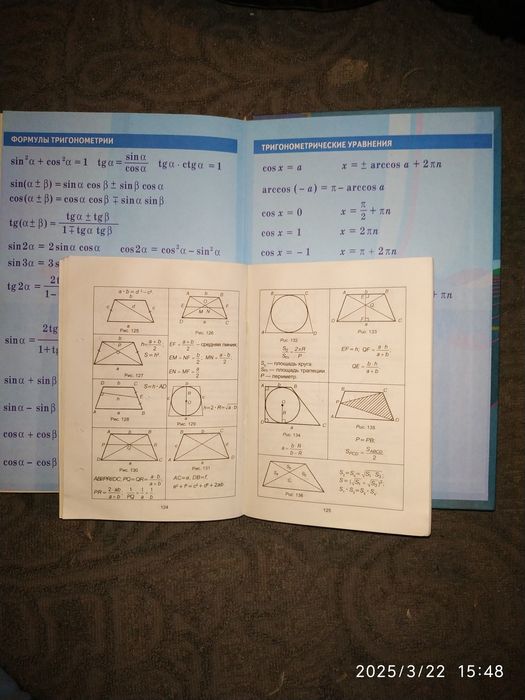 ФОРМУЛЫ ТРИГОНОМЕТРИИ
sin²α + cos²α = 1 tgα = sinα/cosα tgα · ctgα = 1
sin(α ± β) = sinα cosβ ± sinβ cosα
cos(α ± β) = cosα cosβ ∓ sinα sinβ
tg(α ± β) = (tgα ± tgβ)/(1 ∓ tgα tgβ)
sin2α = 2sinα cosα cos2α = cos²α − sin²α
sin3α = 3s
tg2α =
sinα =
sinα + sinβ
sinα − sinβ
cosα + cosβ
cosα − cosβ
ТРИГОНОМЕТРИЧЕСКИЕ УРАВНЕНИЯ
cos x = a x = ± arccos a + 2πn
arccos (−a) = π − arccos a
cos x = 0 x = π/2 + πn
cos x = 1 x = 2πn
cos x = −1 x = π + 2πn
a · b = d² − c².
Рис. 125
Рис. 126
h = (a + b)/2;
S = h².
Рис. 127
EF = (a + b)/2 – средняя линия;
EM = NF = b/2; MN = (a − b)/2
EN = MF = a/2
S = h · AD
Рис. 128
h = 2 · R = √(a · b)
Рис. 129
Рис. 130
Рис. 131
AB∥PR∥DC; PQ = QR = (a · b)/(a + b)
PR = (2 · ab)/(a + b); 1/PQ = 1/a + 1/b
AC = e, DB = f,
e² + f² = c² + d² + 2ab
124
Рис. 132
Sк/Sтр = 2πR/P
Sк — площадь круга
Sтр — площадь трапеции
P — периметр.
Рис. 133
EF = h; QF = (a · h)/(a + b)
QE = (b · h)/(a + b)
Рис. 134
a = (b · R)/(b − R)
Рис. 135
P = PB;
SPCD = SABCD/2
Рис. 136
S = (√S₁ + √S₂)²;
125
2025/3/22 15:48